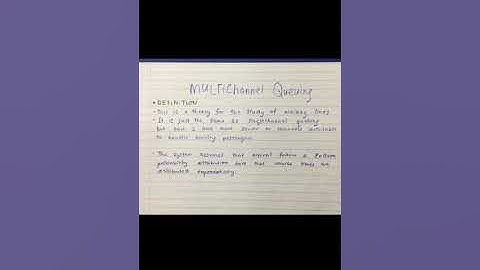 MULTIChannel Queuing
• DEFINITION
- This is a theory for the study of waiting lines
- It is just the same as singlechannel queuing
but has 2 and more server or channels available
to handle arriving passengers.
• The system assumes that arrival follow a Poisson
probability distribution and that service times are
distributed exponentially.